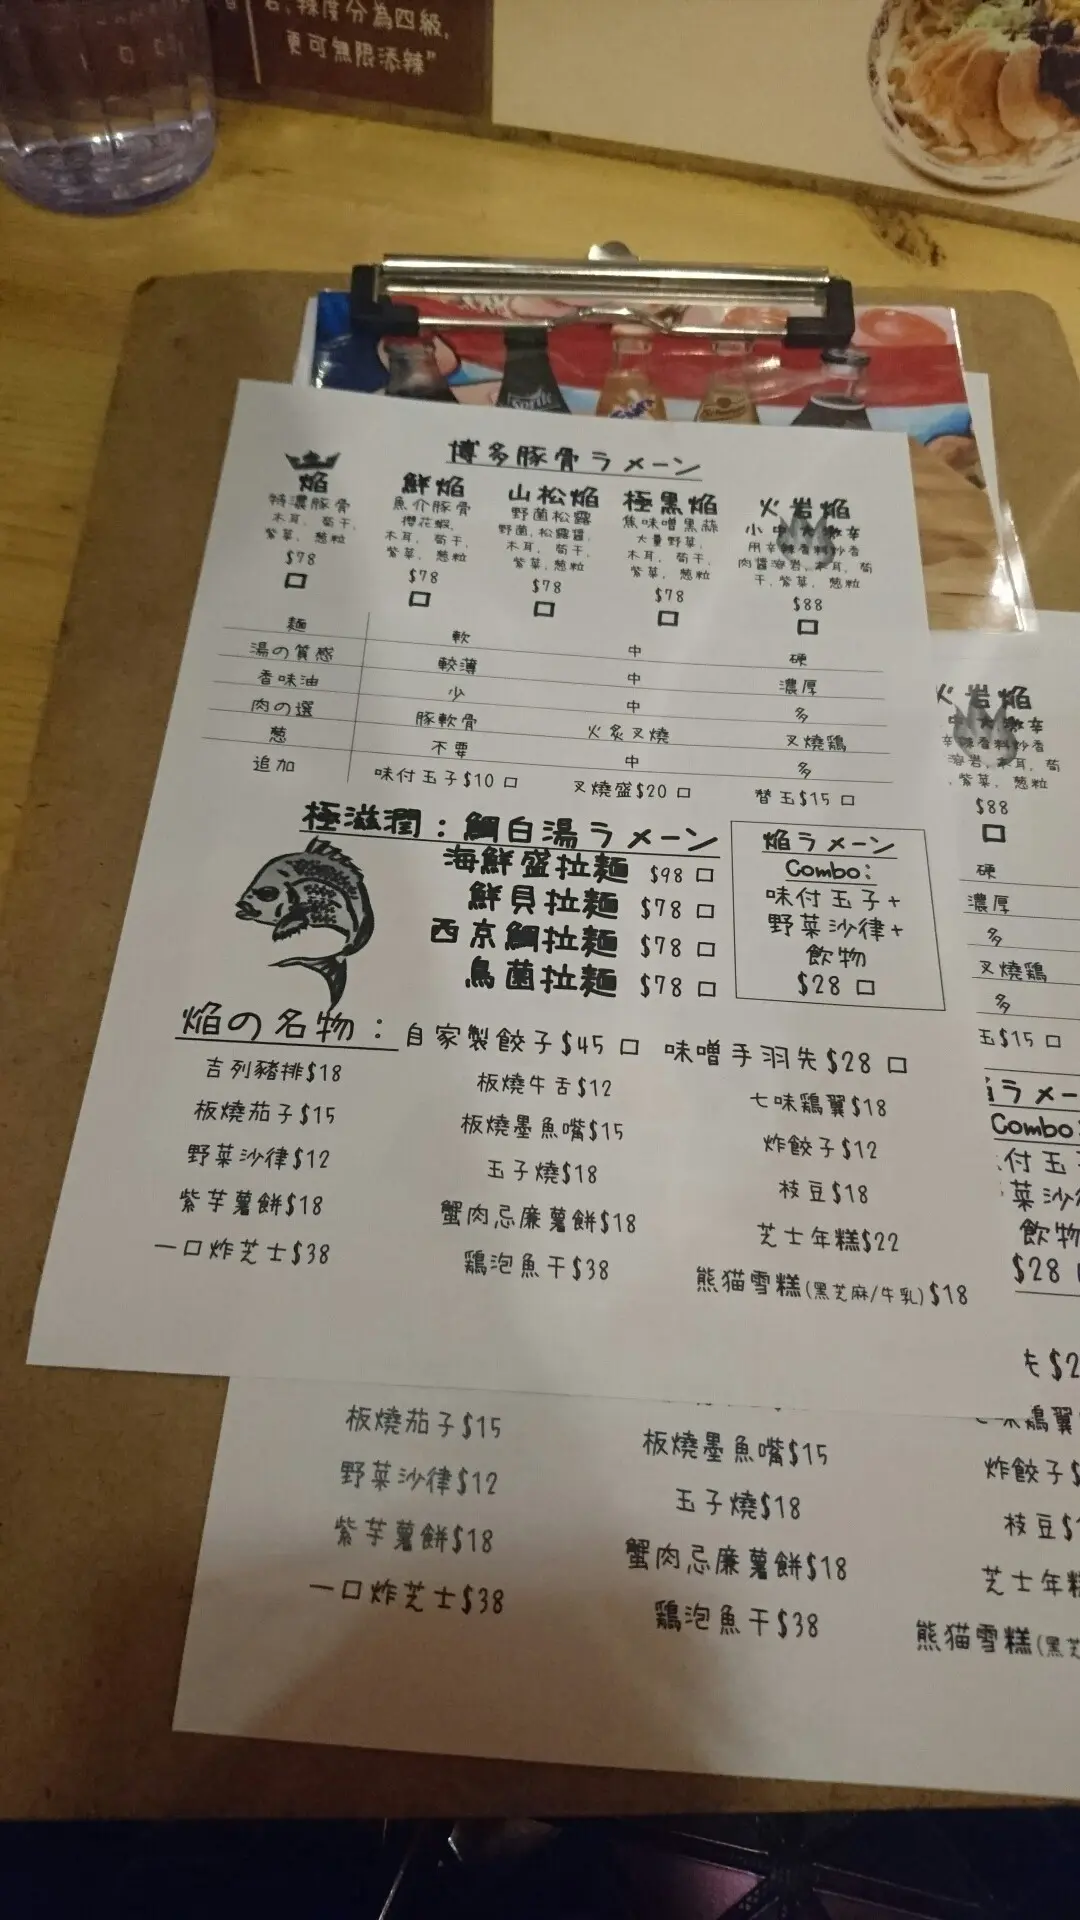 右,辣度分為四級,
更可無限添辣"
博多豚骨ラメーン
焰
特濃豚骨
木耳, 荀干,
紫菜, 葱粒
$78
口
鮮焰
魚介豚骨
櫻花蝦,
木耳, 荀干,
紫菜, 葱粒
$78
口
山松焰
野菌松露
野菌,松露醬,
木耳, 荀干,
紫菜,葱粒
$78
口
極黒焰
焦味噌黒蒜
大量野菜,
木耳, 荀干,
紫菜, 葱粒
$78
口
火岩焰
小中大激辛
用辛辣香料炒香
肉醬溶岩,木耳, 荀
干,紫菜, 葱粒
$88
口
麵 軟 中 硬
湯の質感 較薄 中 濃厚
香味油 少 中 多
肉の選 豚軟骨 火炙叉燒 叉燒鶏
葱 不要 中 多
追加 味付玉子$10 口 叉燒盛$20 口 替玉$15 口
極滋潤：鯛白湯ラメーン
海鮮盛拉麵 $98 口
鮮貝拉麵 $78 口
西京鯛拉麵 $78 口
鳥菌拉麵 $78 口
焰ラメーン
Combo:
味付玉子+
野菜沙律+
飲物
$28 口
焰の名物：自家製餃子$45 口 味噌手羽先$28 口
吉列豬排$18 板燒牛舌$12 七味鶏翼$18
板燒茄子$15 板燒墨魚嘴$15 炸餃子$12
野菜沙律$12 玉子燒$18 枝豆$18
紫芋薯餅$18 蟹肉忌廉薯餅$18 芝士年糕$22
一口炸芝士$38 鶏泡魚干$38 熊猫雪糕(黑芝麻/牛乳)$18
火岩焰
中大激辛
辛辣香料炒香
溶岩,木耳, 荀
,紫菜, 葱粒
$88
口
硬
濃厚
多
叉燒鶏
多
玉$15 口
ラメー
Combo:
付玉子
菜沙
飲物
$28
$2
板燒茄子$15 板燒墨魚嘴$15 味鶏翼
野菜沙律$12 玉子燒$18 炸餃子$
紫芋薯餅$18 蟹肉忌廉薯餅$18 枝豆$1
一口炸芝士$38 鶏泡魚干$38 芝士年糕
熊猫雪糕(黑芝